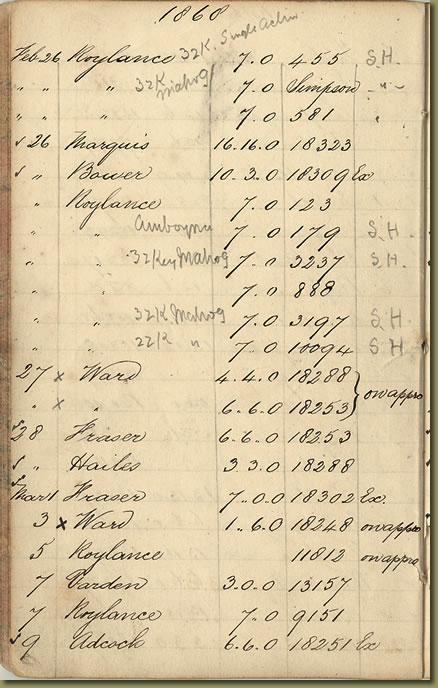 1868
32K. Single Action
Feb 26 Roylance 7.0 455 S.H.
" " " 32K Mahog 7.0 Simpson - " -
" " " 7.0 581 "
s 26 Marquis 16.16.0 18323
s " Bower 10.3.0 18309 Ex
" Roylance 7.0 123
" " Amboyna 7.0 179 S.H.
" " 32 Key Mahog 7.0 3237 S.H.
" " 7.0 888
" " 32K Mahog 7.0 3197 S.H.
" " 22K " 7.0 10094 S.H.
27 x Ward 4.4.0 18288
" x " 6.6.0 18253 } on appro
s 28 Fraser 6.6.0 18253
s " Hailes 3.3.0 18288
s Mar 1 Fraser 7.0.0 18302 Ex.
3 x Ward 1.6.0 18248 on appro
5 Roylance 11812 on appro
7 Varden 3.0.0 13157
7 Roylance 7.0 9151
s 9 Adcock 6.6.0 18251 Ex